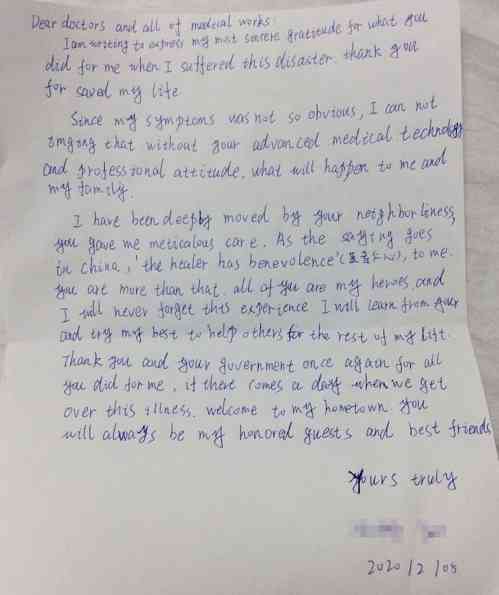 Dear doctors and all of medical works:
I am writing to express my most sincere gratitude for what you
did for me when I suffered this disaster. thank you
for saved my life
Since my symptoms was not so obvious, I can not
that without your advanced medical technology
and professional attitude, what will happen to me and
my family.
I have been deeply moved by your neighborliness,
you gave me meticulous care. As the saying goes
in china, 'the healer has benevolence' (医者仁心), to me.
you are more than that. all of you are my heroes, and
I will never forget this experience I will learn from your
and try my best to help others for the rest of my life.
Thank you and your government once again for all
you did for me, if there comes a day when we get
over this illness. welcome to my hometown you
will always be my honored guests and best friends
Yours truly
2020/2/08